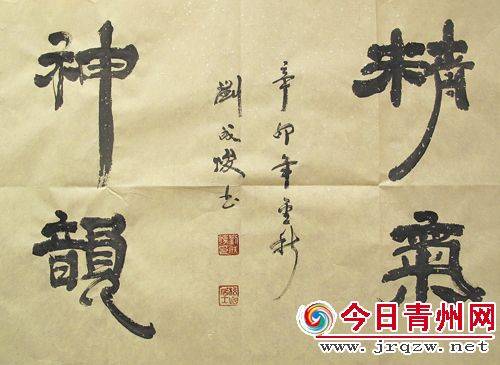 精氣
神韻
辛卯年金秋
劉成俊书
今日青州网
www.jrqzw.net